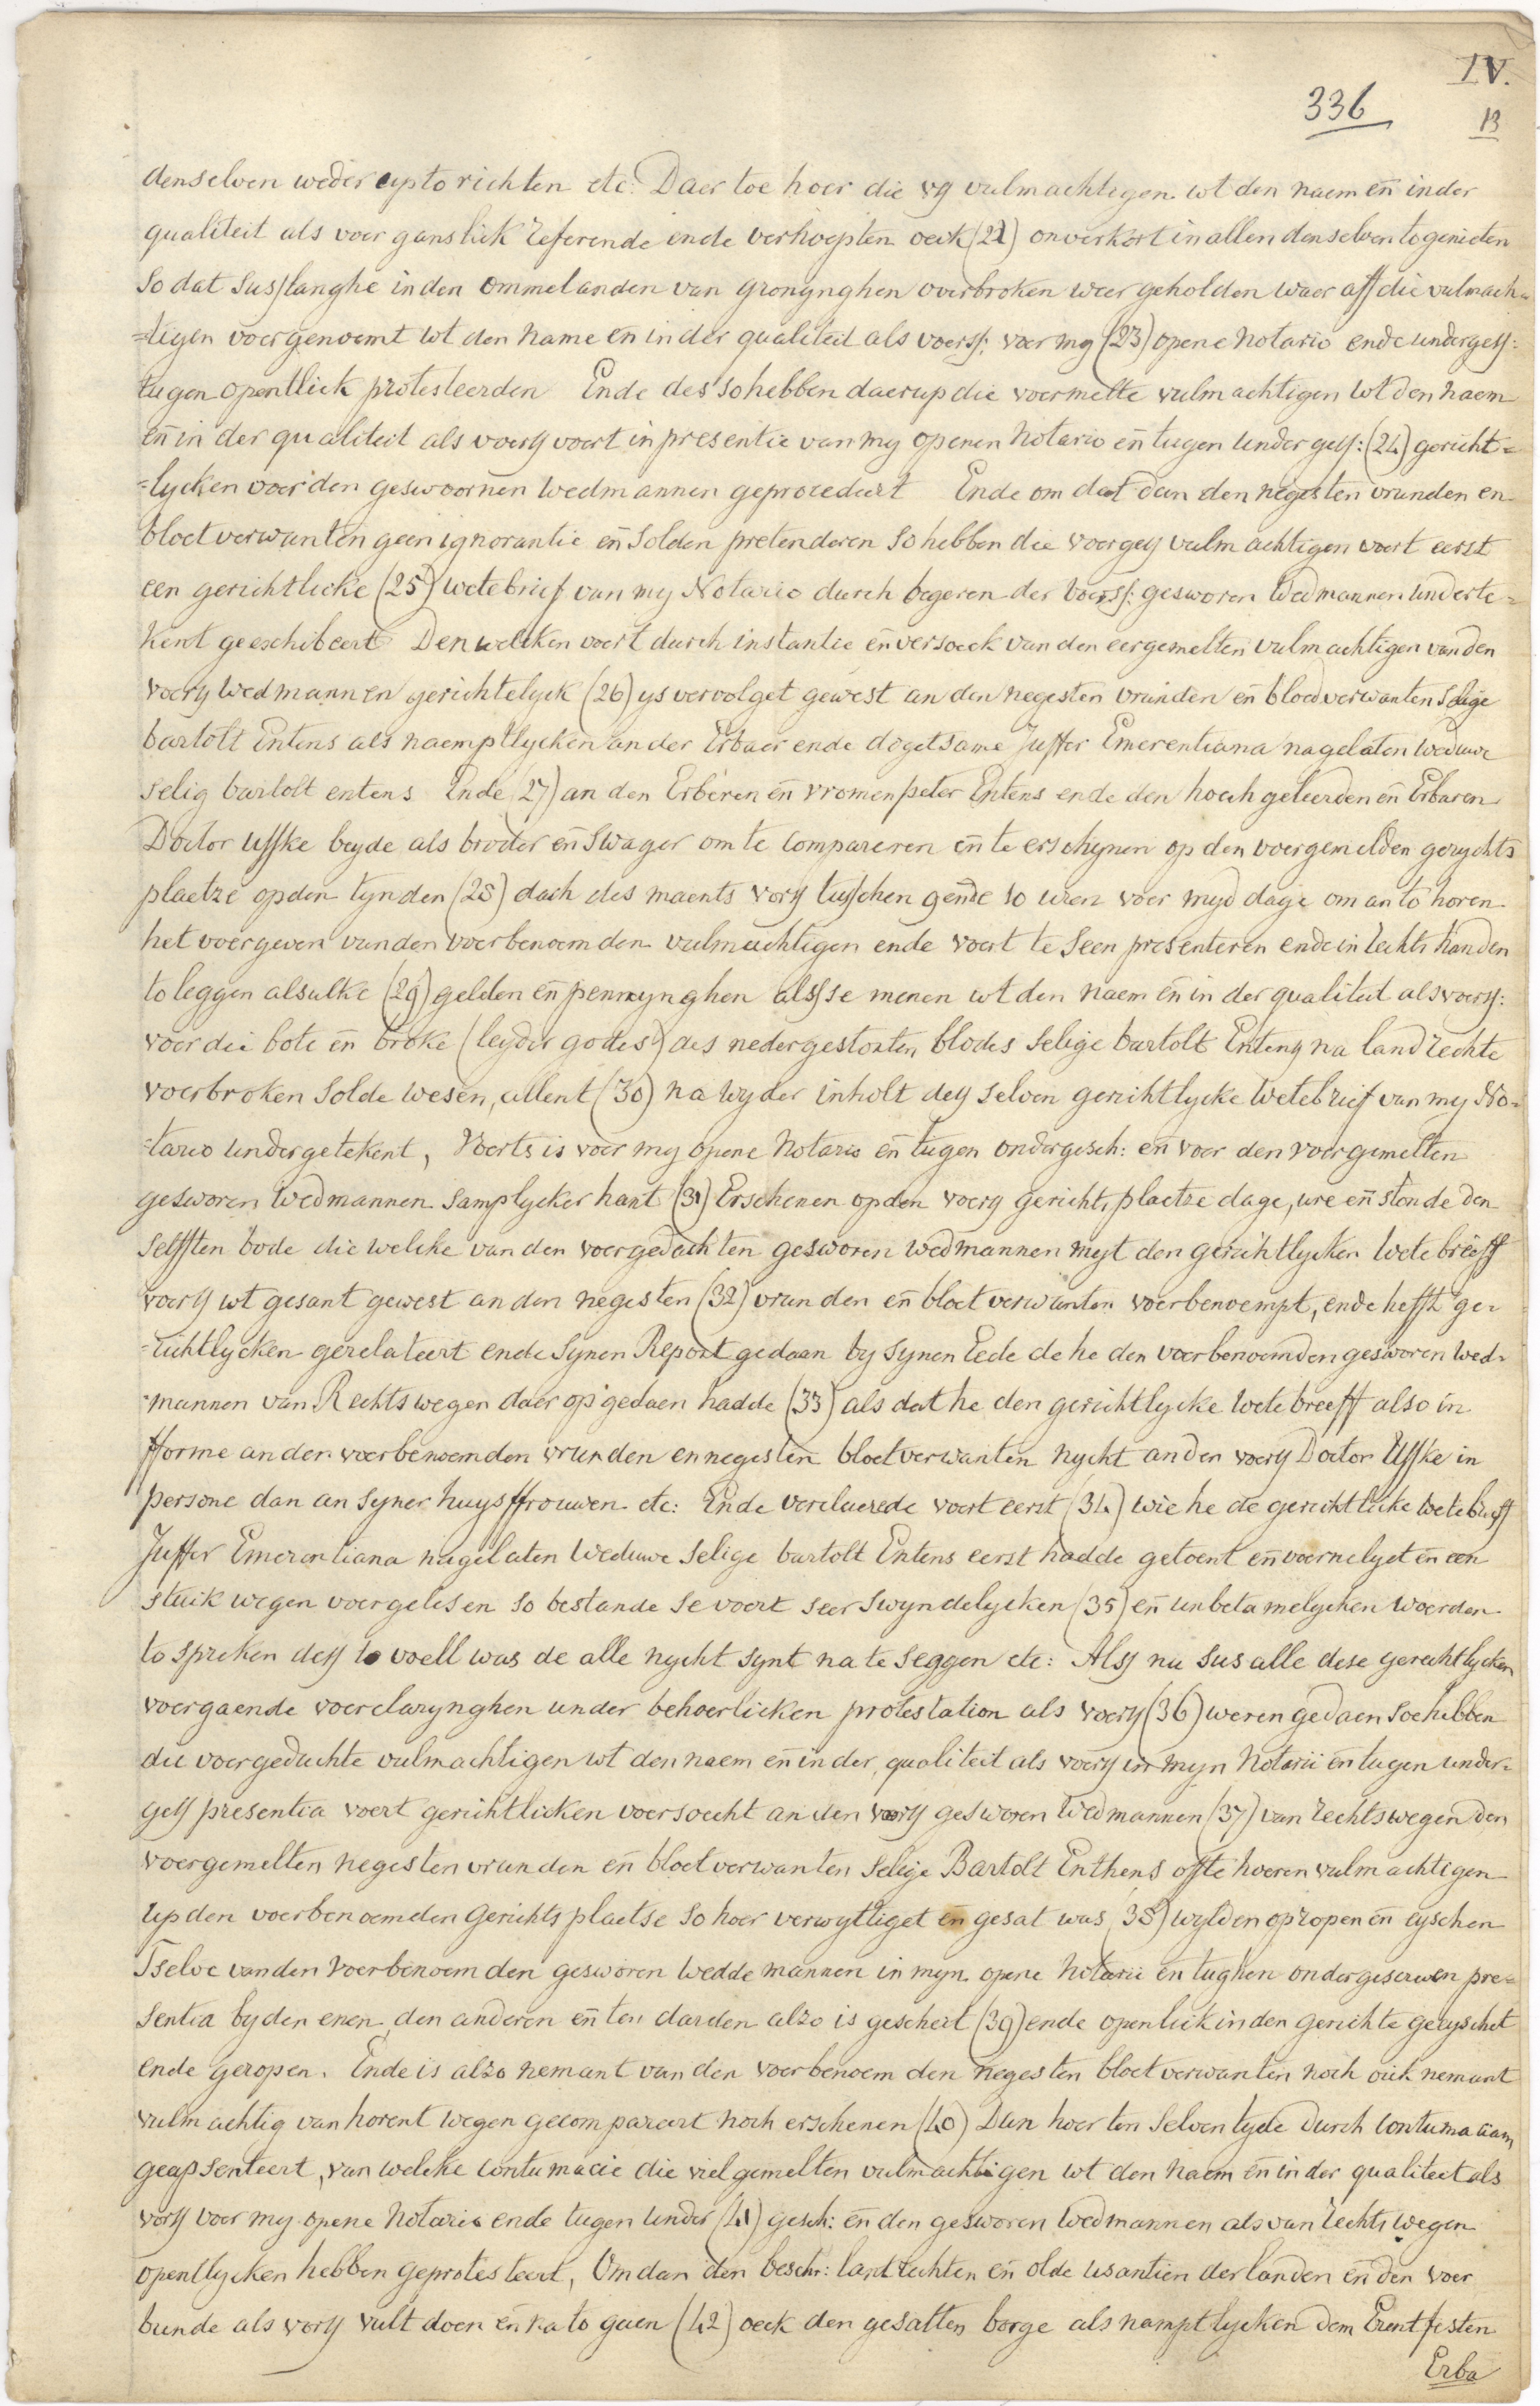 IV.
336
13
denselven weder uptorichten etc: Daer toe hoer die vg vulmachtigen wt den naem en̄ inder
qualiteit als voer ganslick referende ende verhoepten oeck (22) onverkort in allen denselven to genieten
So dat suslanghe inden Ommelanden van gronynghen overbroken weer geholden waer aff die vulmach-
=tigen voergenoemt wt den name en̄ in der qualiteit als voerss: voer my (23) opene Notario ende undergess:
tugen opentlick protesteerden Ende des so hebben daerup die voermelte vulmachtigen wt den naem
en̄ in der qualiteit als voerss voert in presentie van my openen Notario en̄ tugen undergess: (24) gericht=
=lycken voer den geswoornen wedmannen geprocedeert Ende om dat dan den negesten vrunden en
bloetverwanten geen ignorantie en̄ solden pretenderen so hebben die voergess vulmachtigen voert eerst
een gerichtlicke (25) wetebrief van my Notario durch begeren der voerss: gesworen Wedmannen underte=
kent geexhibeert Denwelcken voert durch instantie en̄ versoeck van den eergemelten vulmachtigen van den
voerss wedmannen gerichtelyck (26) ys vervolget gewest an den negesten vrunden en̄ bloedverwanten selige
bartolt Entens als naemptlycken an der Erbaer ende dogetsame Juffer Emerentiana nagelaten weduwe
selig bartolt entens Ende (27) an den Erberen en̄ vromen peter Entens ende den hoech geleerden en̄ Erbaren
Doctor Uffke beyde als broder en̄ Swager om te compareren en̄ te erschynen op den voergemelden gerychts
plaetze opden tynden (28) dach des maents vorss tusschen gende 10 uren voer myd dage om an to horen
het voergeven van den voerbenoemden vulmachtigen ende voert te seen presenteren ende in rechts handen
to leggen alsulke (29) gelden en̄ pennynghen alsse menen wt den naem en̄ in der qualiteit als voerss:
voer die bote en̄ broke (leyder godes) des nedergestorten blodes selige bartolt Entens na landrechte
voerbroken solde wesen, allent (30) na wyder inholt dess selven gerichtlycke wetebrief van my No=
=tario undergetekent, Voerts is voer my opene Notario en̄ tugen ondergesch: en̄ voer den voergemelten
gesworen Wedmannen samplycker hant (31) Erschenen opden voerss gerichts plaetze dage, ure en̄ stonde den
selfften bode die welcke van den voergedachten gesworen wedmannen myt den gerichtlycken wetebrieff
voerss wt gesant gewest an den negesten (32) vrunden en̄ bloetverwanten voerbenoempt, ende hefft ge=
=richtlycken gerelateert ende synen Report gedaen by synen Eede de he den voerbenoemden gesworen wed=
=mannen van Rechts wegen daer op gedaen hadde (33) als dat he den gerichtlycke wetebreeff also in
fforme an den voerbenoemden vrunden en negesten bloetverwanten nycht an den voerss Doctor Uffke in
persone dan an syner huysffrouwen etc: Ende verclaerede voert eerst (34) wie he de gerichtlicke wetebrieff
Juffer Emerentiana nagelaten Weduwe selige bartolt Entens eerst hadde getoent en̄ voernelyct en̄ een
stuik wegen voergelesen so bestande se voert seer swyndelycken (35) en̄ unbetamelycken woerden
to spreken dess to voell was de alle nycht synt na te seggen etc: Alss nu sus alle dese gerechtlycken
voergaende voerclarynghen under behoerlicken protestation als voerss (36) weren gedaen soe hebben
die voergedachte vulmachtigen wt den naem en̄ in der qualiteit als voerss in myn Notarii en̄ tugen under=
gess presentia voert gerichtlicken voersoecht an den vorss gesworen Wedmannen (37) van rechtswegen den
voergemelten negesten vrunden en̄ bloetverwanten selige Bartolt Enthens offte hoeren vulmachtigen
up den voerbenoemden Gerichts plaetse so hoer verwyttiget en̄ gesat was (38) wylden opropen en̄ eyschen
Tselve van den voerbenoemden gesworen wedde mannen in myn opene Notarii en̄ tughen ondergescreven pre=
sentia by den enen, den anderen en̄ ten darden also is gescheit (39) ende openlick in den gerichte geeyschet
ende geropen. Ende is also nemant van den voerbenoemden negesten bloetverwanten noch oick nemant
vulmachtig van horent wegen gecompareert noch erschenen (40) Dan hoer ten selven tyde durch contumaciam
geapsenteert, van welcke contumacie die vielgemelten vulmachtigen wt den naem en̄ in der qualiteet als
vorss voer my opene Notario ende tugen under (41) gesch: en̄ den gesworen Wedmannen als van rechts wegen
opentlycken hebben geprotesteert, Om dan den beschr: landrechten en̄ olde usantien der landen en̄ den voer
bunde als vorss vult doen en̄ na to gaen (42) oeck den gesatten borge als namptlycken dem Erentfesten
Erba